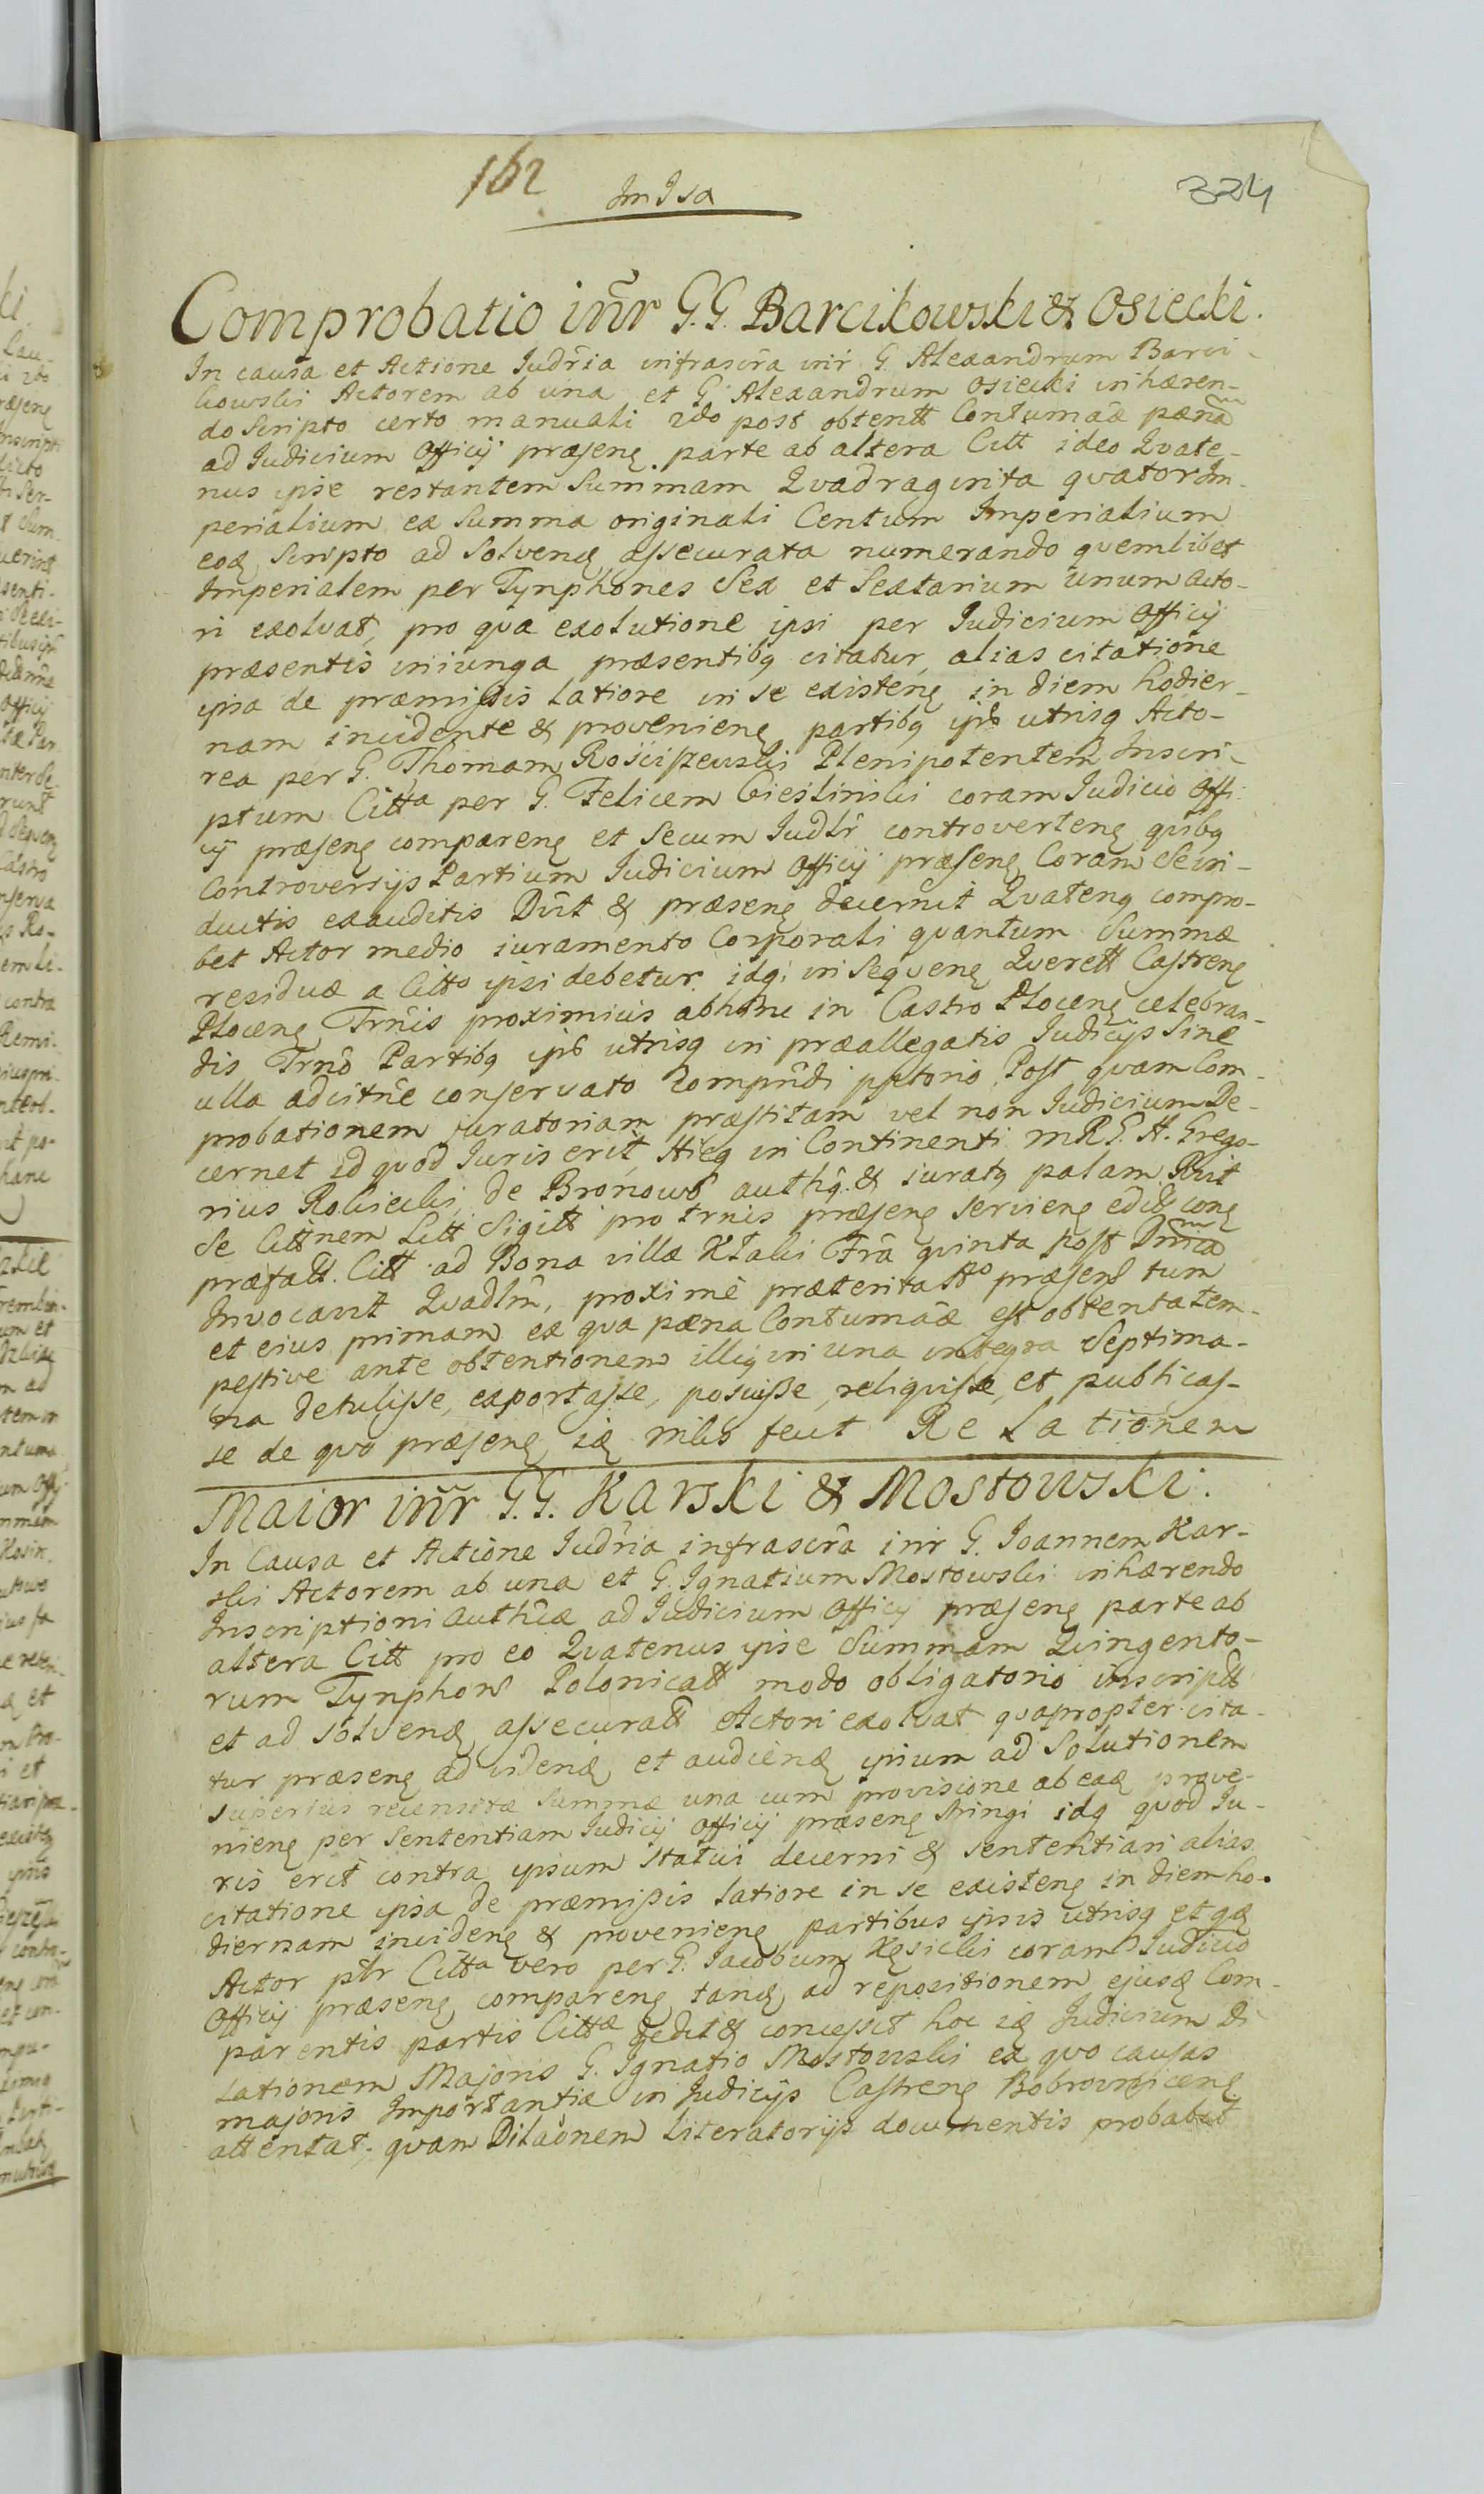 162
ImJsa
324
Comprobatio inr̃ G.G. Barcikowski & Osiecki.
In causa et Actione Judr̃ia infrascr̃a inr̃ G. Alexandrum Barci-
kowski Actorem ab una et G. Alexandrum Osiecki inhæren-
do Scripto certo manuali 2do post obtentt Contumãæ pænã
ad Judicium Officij præsenę parte ab altera Citt ideo Quate-
nus ipse restantem Summam Quadraginta quator Im-
perialium ex Summa originali Centum Imperialium
eoą Scripto ad Solveną assecurata numerando quemlibet
Imperialem per Tynphones Sex et Sextarium unum Acto-
ri exolvat, pro qua exolutione ipsi per Judicium Officij
præsentis iniunga præsentibą citatur, alias citatione
ipsa de præmissis Latiore in se existenę in diem hodier-
nam incidente & provenienę partibą ipś utrisą Acto-
rea per G. Thomam Rościszewski Plenipotentem Inscri-
ptum Citta per G. Felicem Cieślinski coram Judicio Offi-
cij præsenę comparenę et Secum Judlr̃ controvertenę quibą
Controversijs Partium Judicium Officij præsenę Coram Se in-
ductis exauditis Dũt & præsenę decernit Quatenę compro-
bet Actor medio iuramento Corporali quantum Summæ
residuæ a Citto ipsi debetur. idą. in Sequenę Querett Castrenę
Plocenę Trñis proximius abhinc in Castro Plocenę celebran-
dis Trnõ Partibą ipś utrisą in præallegatis Judicijs Sine
ulla adcitñe conservato compñdi pptorio. Post quam Com-
probationem juratoriam præstitam vel non Judicium De-
cernet id quod Juris erit, Hicą in Continenti MR G. A. Grego-
rius Rokicki, de Bronowo authą. & iuratą palam Rcũt
Se Cittñem Litt Sigitt pro trnis præsenę Servienę edit conę
præfatt. Citt ad Bona villæ Kłaki Frã quinta post Dnĩca
Invocavit Quadlm̃, proximè præterita Ao præsens tum
et eius primam ex qua pæna Contumãæ est obtenta tem-
pestive ante obtentionem illią in una integra Septima-
na detulisse, exportasse, posuisse, reliquisse, et publicas-
se de quo præsenę ią mlis̃ fecit Relationem
Maior inr̃ G.G. Karski & Mostowski.
In Causa et Actione Judr̃ia infrascr̃a inr̃ G. Joannem Kar-
ski Actorem ab una et G. Ignatium Mostowski inhærendo
Inscriptioni Authc̃æ ad Judicium Officij præsenę parte ab
altera Citt pro eo Quatenus ipse Summam Quingento-
rum Tynphon̄ Polonicatt modo obligatorio inscriptt
et ad solveną assecuratt Actori exolvat quapropter cita-
tur præsenę ad vidēną et audiēną ipsum ad Solutionem
superius recensitæ Summæ una cum provisione ab eaą prove-
nienę per Sententiam Judicij Officij præsenę stringi idą quod Ju-
ris erit contra ipsum statui decerni & sententiari alias
citatione ipsa de præmissis latiore in se existenę in diem ho-
diernam incidenę & provenienę partibus ipsis utrisą et qą
Actor plr̃ Citta vero per G. Jacobum Kęsicki coram Judicio
Officij præsenę comparenę tandę ad repositionem ejusą Com-
parentis partis Cittæ dedit & concessit hoc ią Judicium Di-
lationem Majoris G. Ignatio Mostowski ex quo causas
majoris Importantiæ in Judicijs Castrenę Bobrownicenę
attentat. quam Dilaõnem Literatorijs documentis probabit